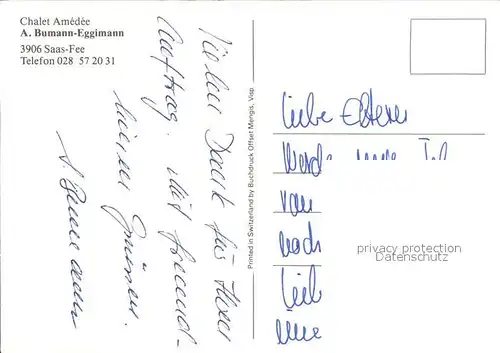 Chalet Amédée
A. Bumann-Eggimann
3906 Saas-Fee
Telefon 028 57 20 31
Vielen Dank für Ihren
Auftrag. Mit freund-
lichen Grüssen.
A. Bumann
Printed in Switzerland by Buchdruck Offset Mengis, Visp
Liebe Eltern
Werde
von
nach
privacy protection
Datenschutz